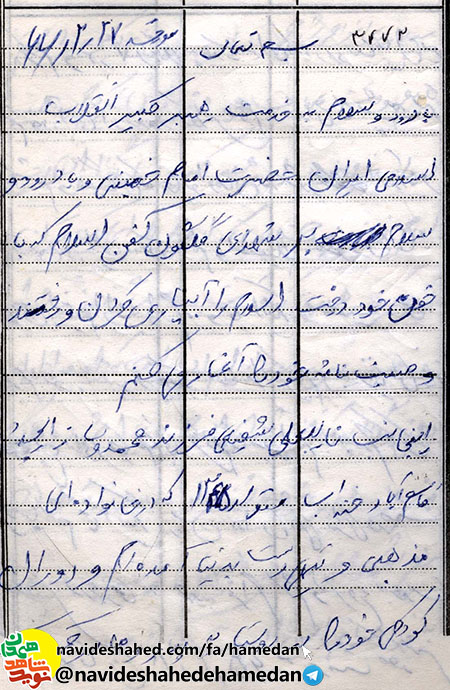 ۳۷۷۲ بسم تعالی مورخه ۶۶/۲/۲۷
با درود و سلام به خدمت رهبر کبیر انقلاب
اسلامی ایران حضرت امام خمینی و با درود و
سلام بر شهدای گلگون کفن اسلام که با
خون خود درخت اسلام را آبیاری کردن و رفتند
وصیت نامه خود را آغاز می کنم
اینجانب شیخی فرزند محمد
آباد متولد که در خانواده‌ای
مذهبی و تهی دست به دنیا آمده‌ام و دوران
کودکی خود را
navideshahed.com/fa/hamedan
@navideshahedehamedan